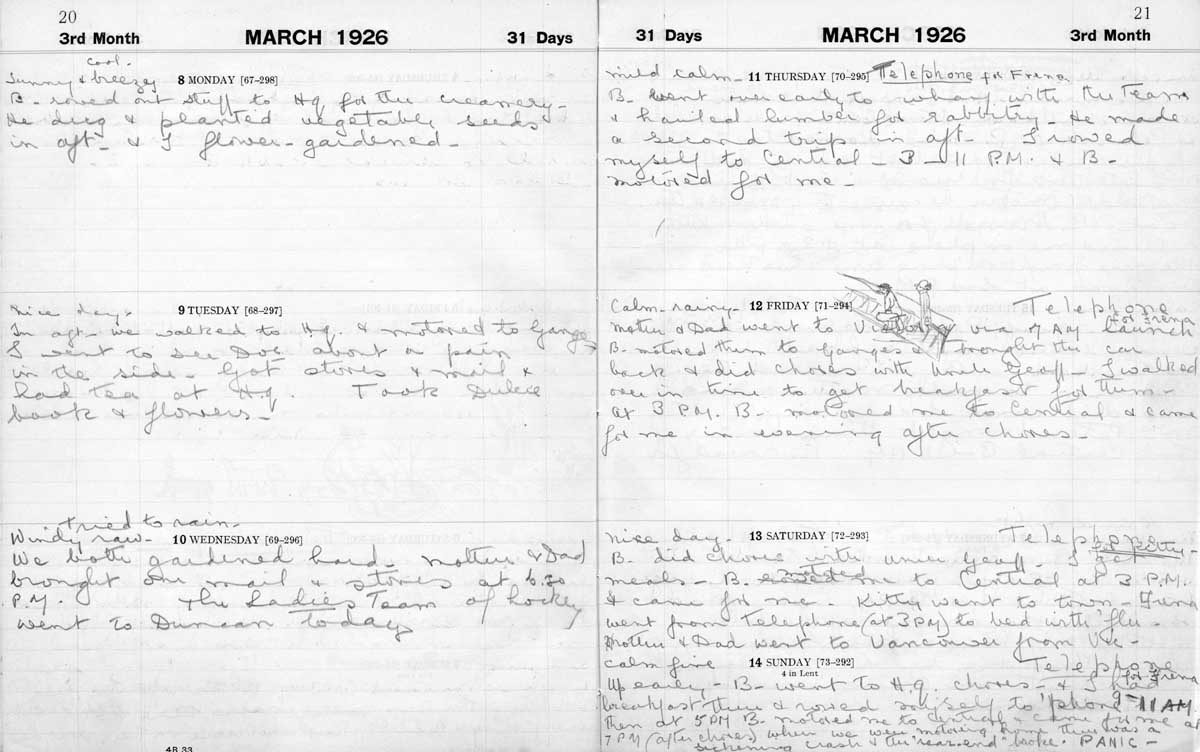 20
3rd Month MARCH 1926 31 Days
cool.
Sunny & breezy 8 MONDAY [67-298]
B- rowed out stuff to Hq for the creamery-
He dug & planted vegetable seeds
in aft- & I flower-gardened-
nice day- 9 TUESDAY [68-297]
In aft- we walked to Hq. & motored to Ganges
I went to see Doc about a pain
in the side- Got stores & mail &
had tea at Hq. Took Dulcie
book & flowers-
tried to rain-
Windy raw- 10 WEDNESDAY [69-296]
We both gardened hard- mother & Dad
brought our mail & stores at 6.30
P.M. The Ladies Team of hockey
went to Duncan today
4B 33
21
31 Days MARCH 1926 3rd Month
mild calm- 11 THURSDAY [70-295] Telephone for Frena
B- went over early to wharf with the team
& hauled lumber for rabbitry- He made
a second trip in aft- I rowed
myself to Central- 3-11 P.M. & B-
motored for me-
Calm- rainy- 12 FRIDAY [71-294] Telephone
for Frena
mother & Dad went to Victoria via 7 AM launch
B- motored them to Ganges & brought the car
back & did chores with Uncle Geoff- I walked
over in time to get breakfast for them-
At 3 PM. B- motored me to Central & came
for me in evening after chores-
nice day- 13 SATURDAY [72-293] Telephone
for Kitty
B- did chores with Uncle Geoff- I got
meals- B- motored me to Central at 3 P.M.
& came for me- Kitty went to town- Frena
went from Telephone (at 3PM) to bed with 'flu-
Mother & Dad went to Vancouver from Vic-
calm fine 14 SUNDAY [73-292] Telephone
4 in Lent
for Frena
Up early- B- went to H.q. chores- & I had
breakfast then & rowed myself to 'phone 9-11 AM.
then at 5PM B- motored me to Central & came for me at
7 PM (after chores) when we were motoring home there was a
sickening crash & the "rear end" broke- PANIC-